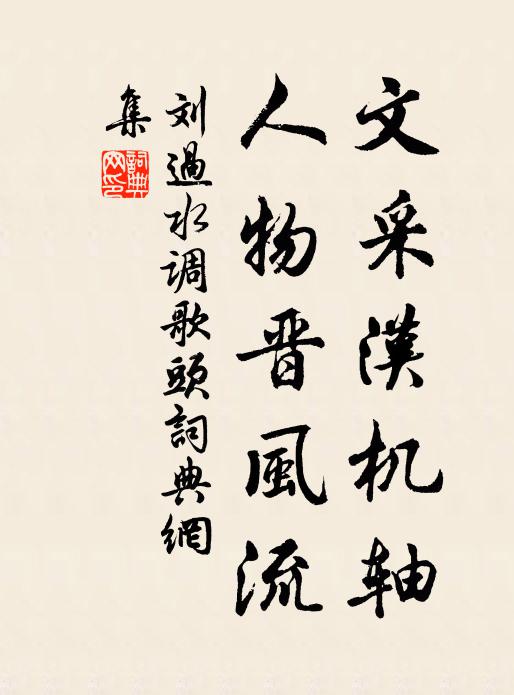 文采漢机轴
人物晋風流
刘過水调歌頭詞典網
集
詞典網印